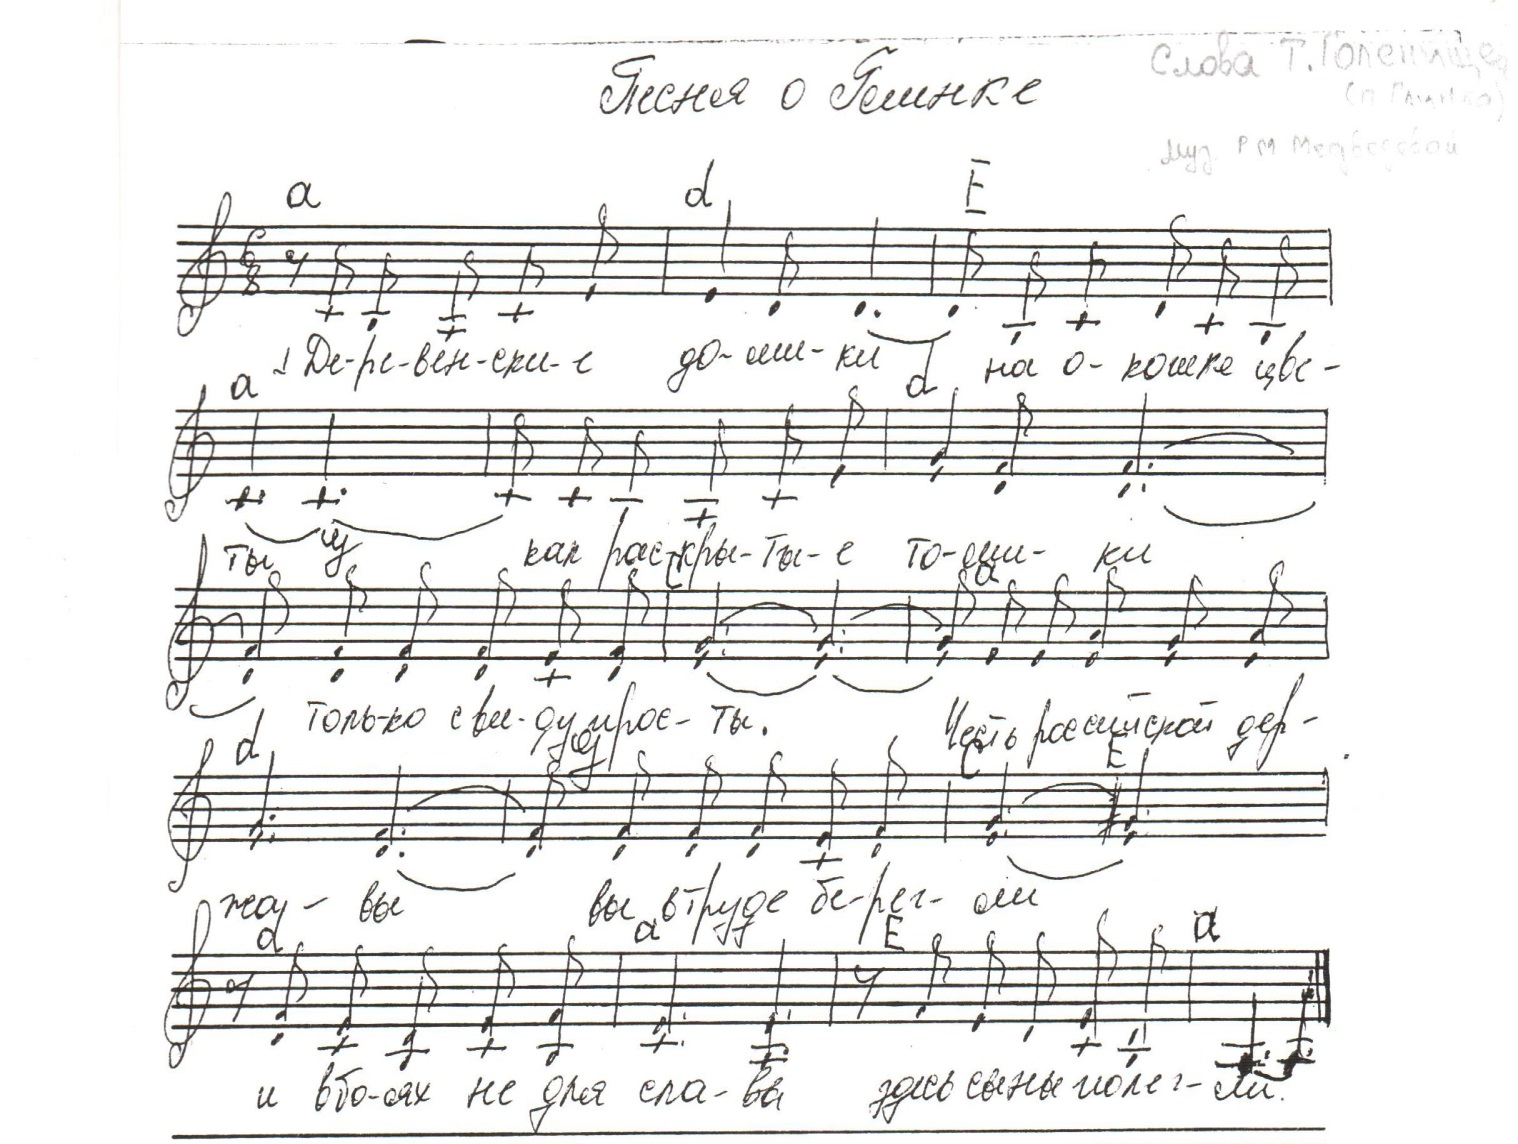 Песня о Глинке
Слова Т. Голенище
(п Глинка)
муз РМ Медведевой
a d E
1 Де-ре-вен-ски-е до-ми-ки на о-кошке цве-
a d
ты у как рас-кры-ты-е то-ми-ки
C a
только с ви-ду прос-ты. Честь российской дер-
d g C E
жа-вы вы в труде бе-рег-ли
d a E a
и в бо-ях не для сла-вы здесь сыны полег-ли.